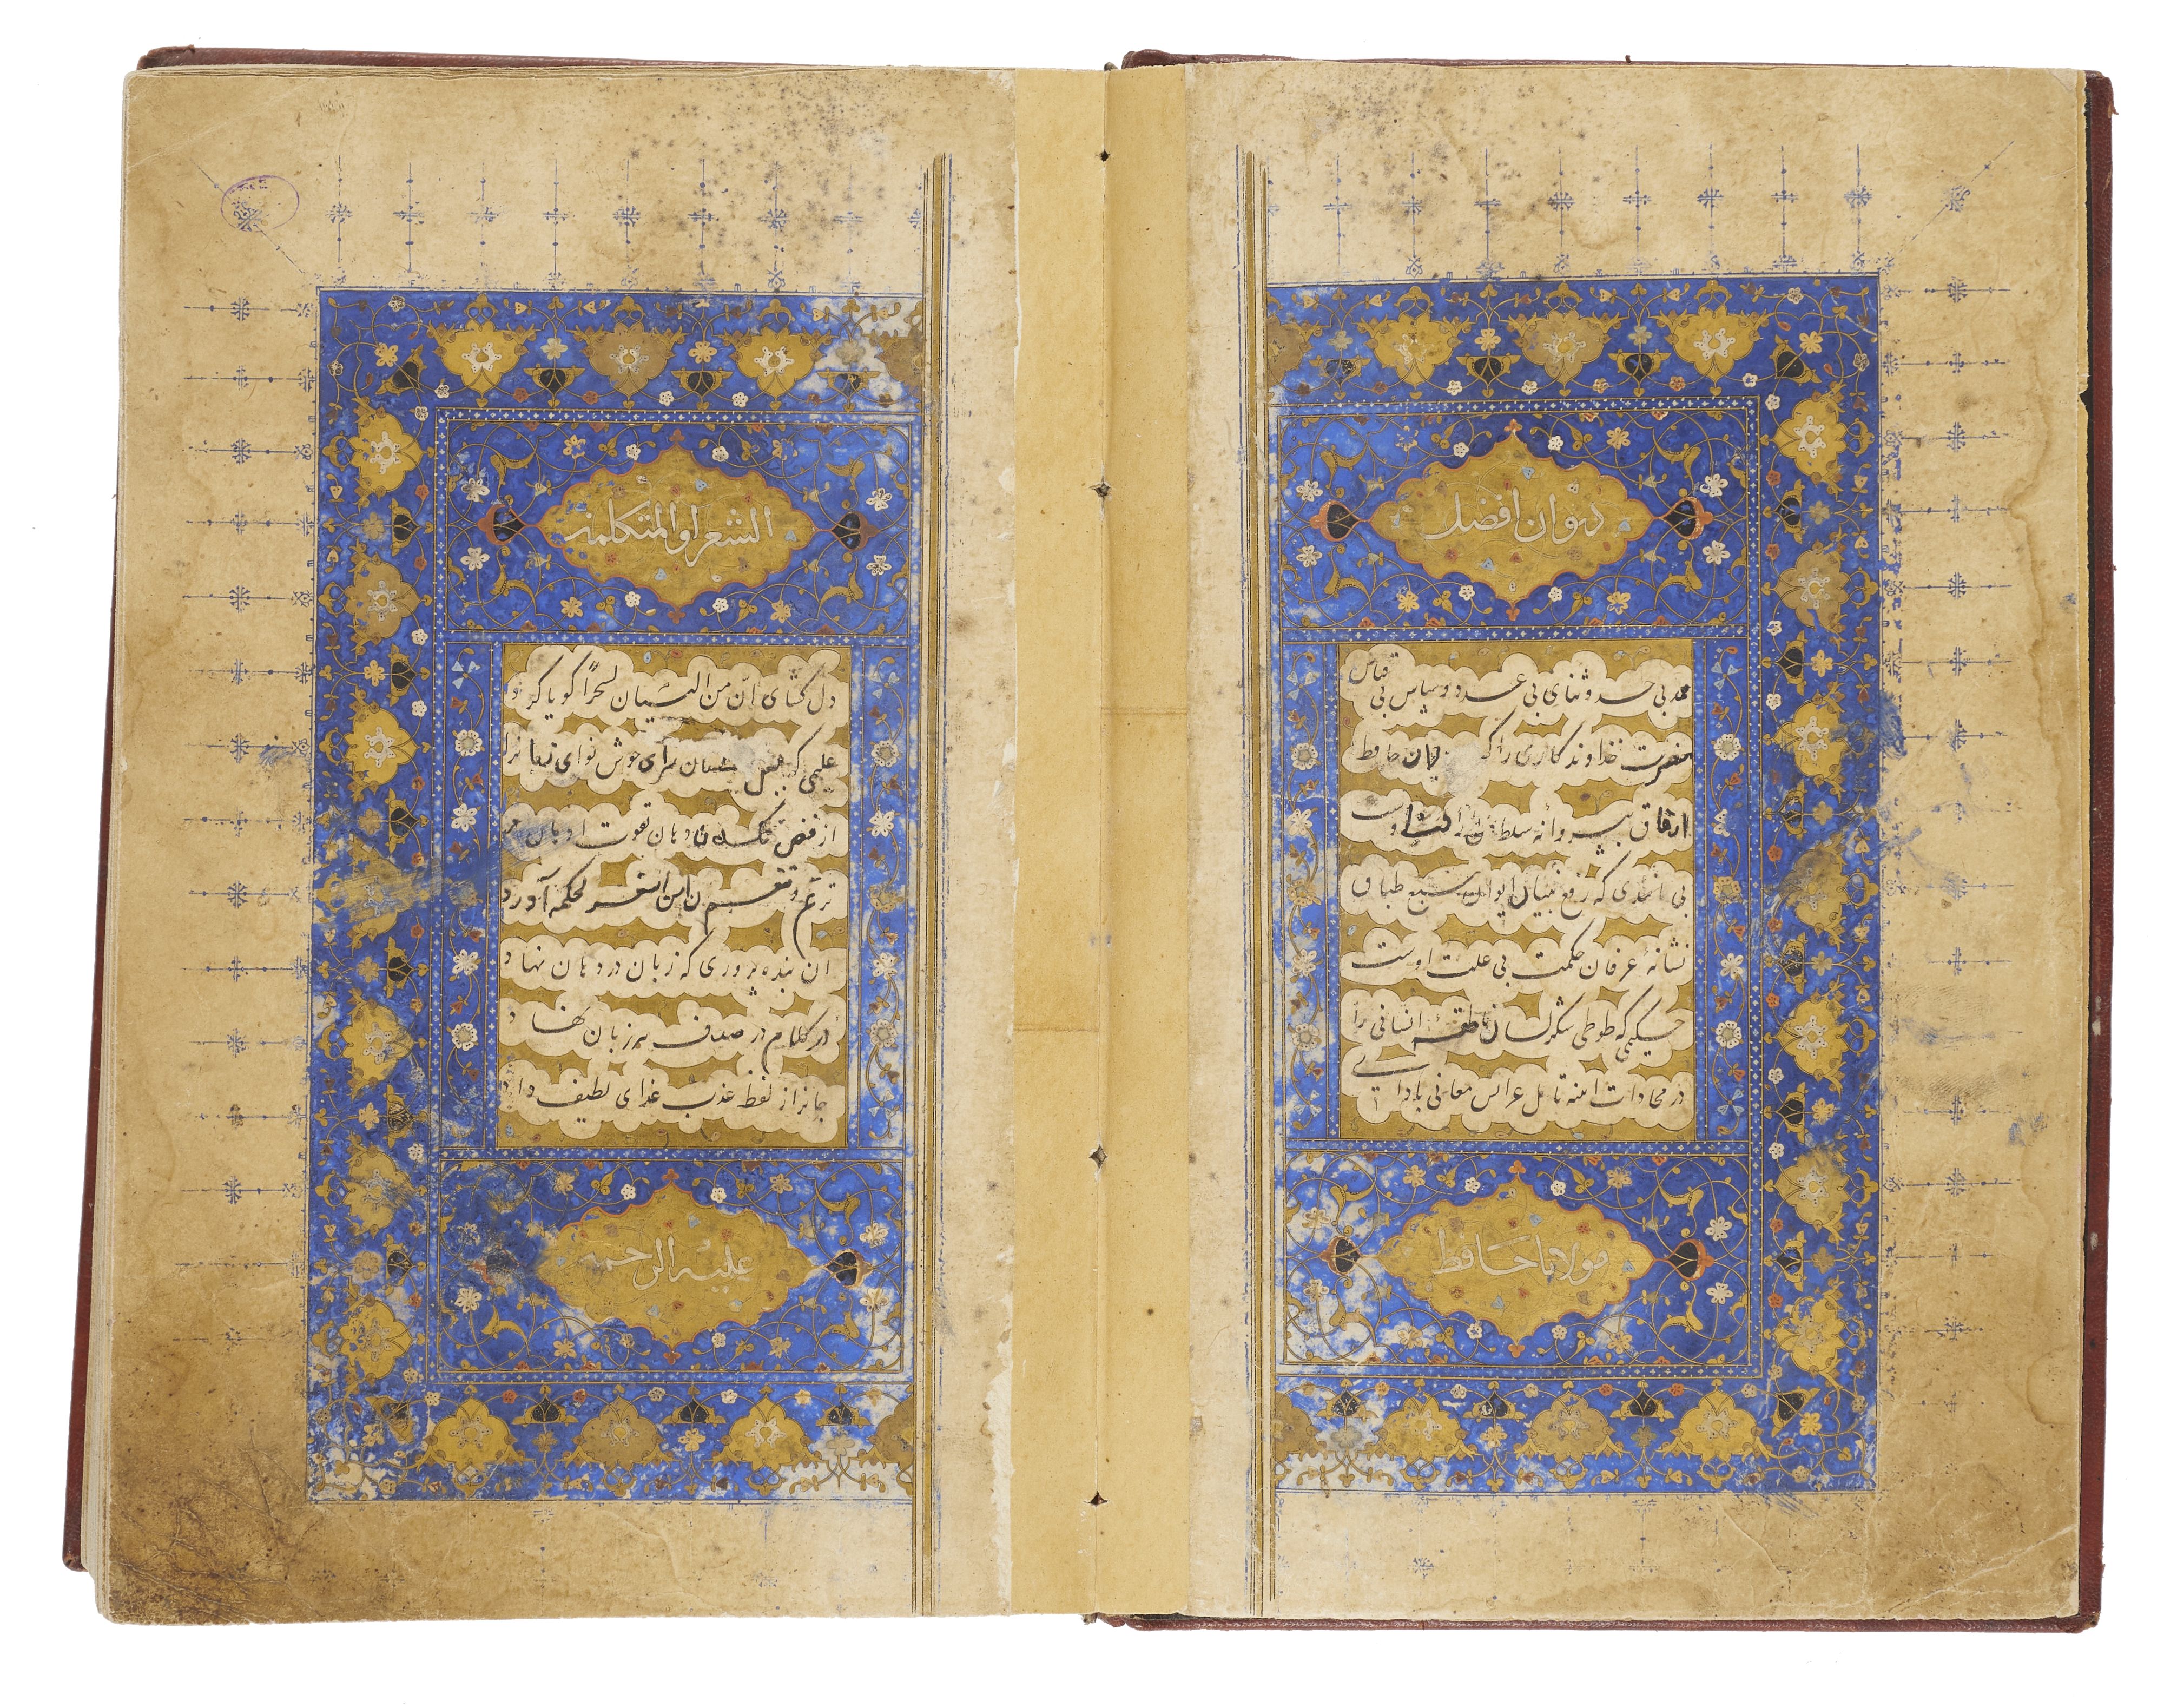 دیوان افضل
حمد بی حد و ثنای بی عدد و سپاس بی قیاس
حضرت خداوندگاری را که حافظ
ارزاق پروانه سلطان اوست
بی مانندی که رفع بنیان ایوان سبع طباق
نشانهٔ عرفان حکمت بی علت اوست
حکیمی که طوطی شکرلسان ناطقهٔ انسانی را
در محاذات اینه تامل عرائس معانی بادای
مولانا حافظ
الشعرا و المتکلمین
دل کشای ان من البیان لسحرا گویا کرد
علیمی که بلبل بستان سرای خوش نوای را
از قفص تنک دهان بقوت
ترنم و تنغم ان من الشعر لحکمة آورد
ان بنده پروری که زبان در دهان نهاد
در کلام در صدف هر زبان نهاد
جانرا ز لفظ عذب غذای لطیف داد
علیه الرحمه